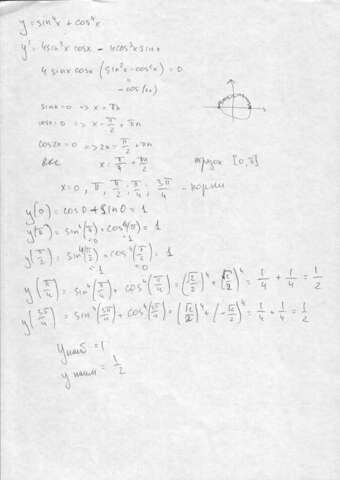 y = sin⁴x + cos⁴x
y' = 4sin³x cosx - 4cos³x sinx
4 sinx cosx (sin²x - cos²x) = 0
-cos(2x)
sinx = 0 => x = πn
cosx = 0 => x = π/2 + πn
cos2x = 0 => 2x = π/2 + πn
x = π/4 + πn/2
отрезок [0, π]
x = 0, π, π/2; π/4; 3π/4 - корни
y(0) = cos0 + sin0 = 1
y(π) = sin⁴(π) + cos⁴(π) = 1
=0 =1
y(π/2) = sin⁴(π/2) + cos⁴(π/2) = 1
=1 =0
y(π/4) = sin⁴(π/4) + cos⁴(π/4) = (√2/2)⁴ + (√2/2)⁴ = 1/4 + 1/4 = 1/2
y(3π/4) = sin⁴(3π/4) + cos⁴(3π/4) = (√2/2)⁴ + (-√2/2)⁴ = 1/4 + 1/4 = 1/2
y наиб = 1
y наим = 1/2